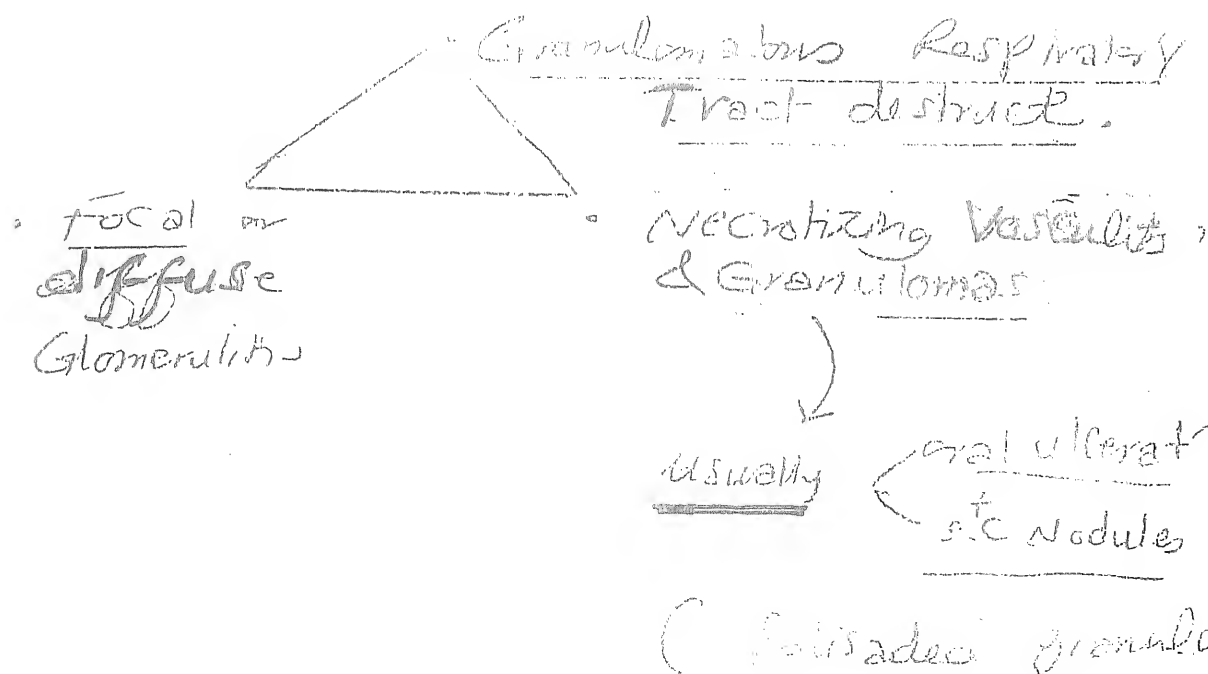 Granulomatous Respiratory
Tract destruct.
Focal or
diffuse
Glomerulitis
Necrotizing Vasculitis
& Granulomas
usually
oral ulcerat
+
s.c Nodules
( Palisaded granulo